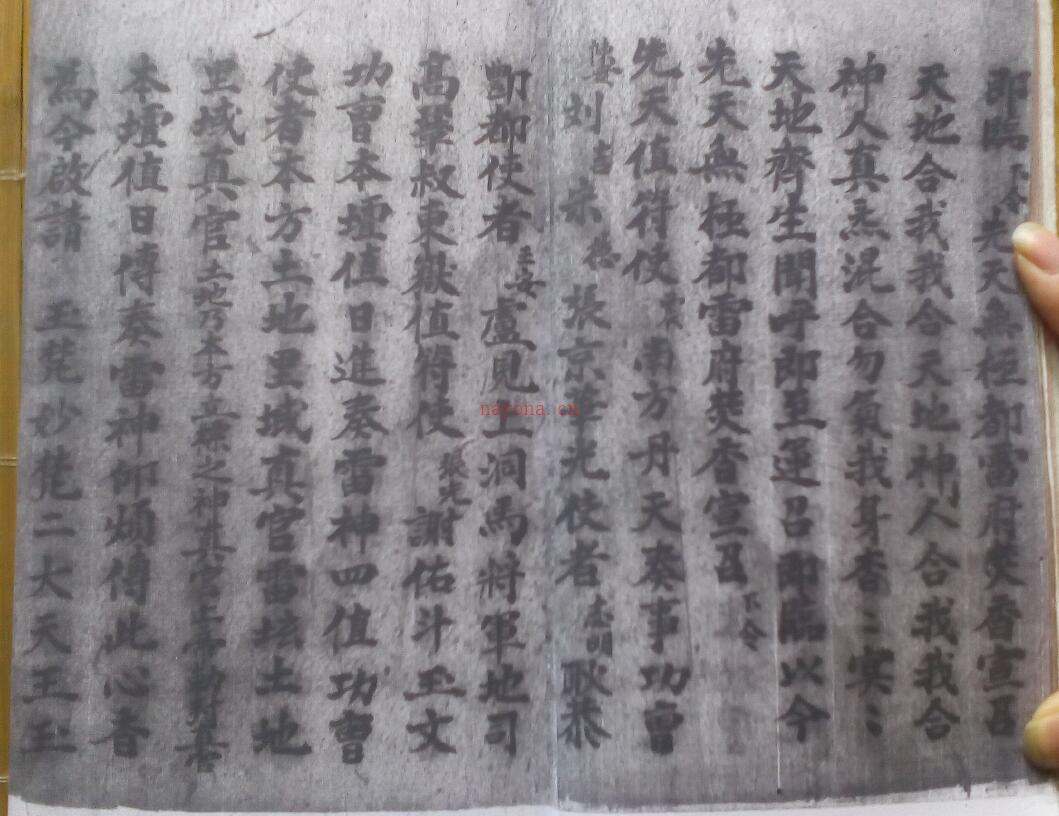 即臨下令先天無極都雷府焚香宣召
天地合我我合天地神人合我我合
神人真炁混合勿氣我身杳〻冥〻
天地齊生聞呼即至運召即臨以今
先天無極都雷府焚香宣召下令
先天值符使南方丹天奏事功曹
刘吉朱張京李光使者志明耿恭
鄷都使者盧見上洞馬將軍地司
高翠叔東嶽值符使張光謝佑斗玉文
功曹本壇值日進奏雷神四值功曹
使者本方土地里域真官雷坛土地
里域真官土地乃本方之神真官上帝
本壇值日傳奏雷神仰煩傳此心香
為今啟請玉梵妙梵二大天王玉
nayona.cn